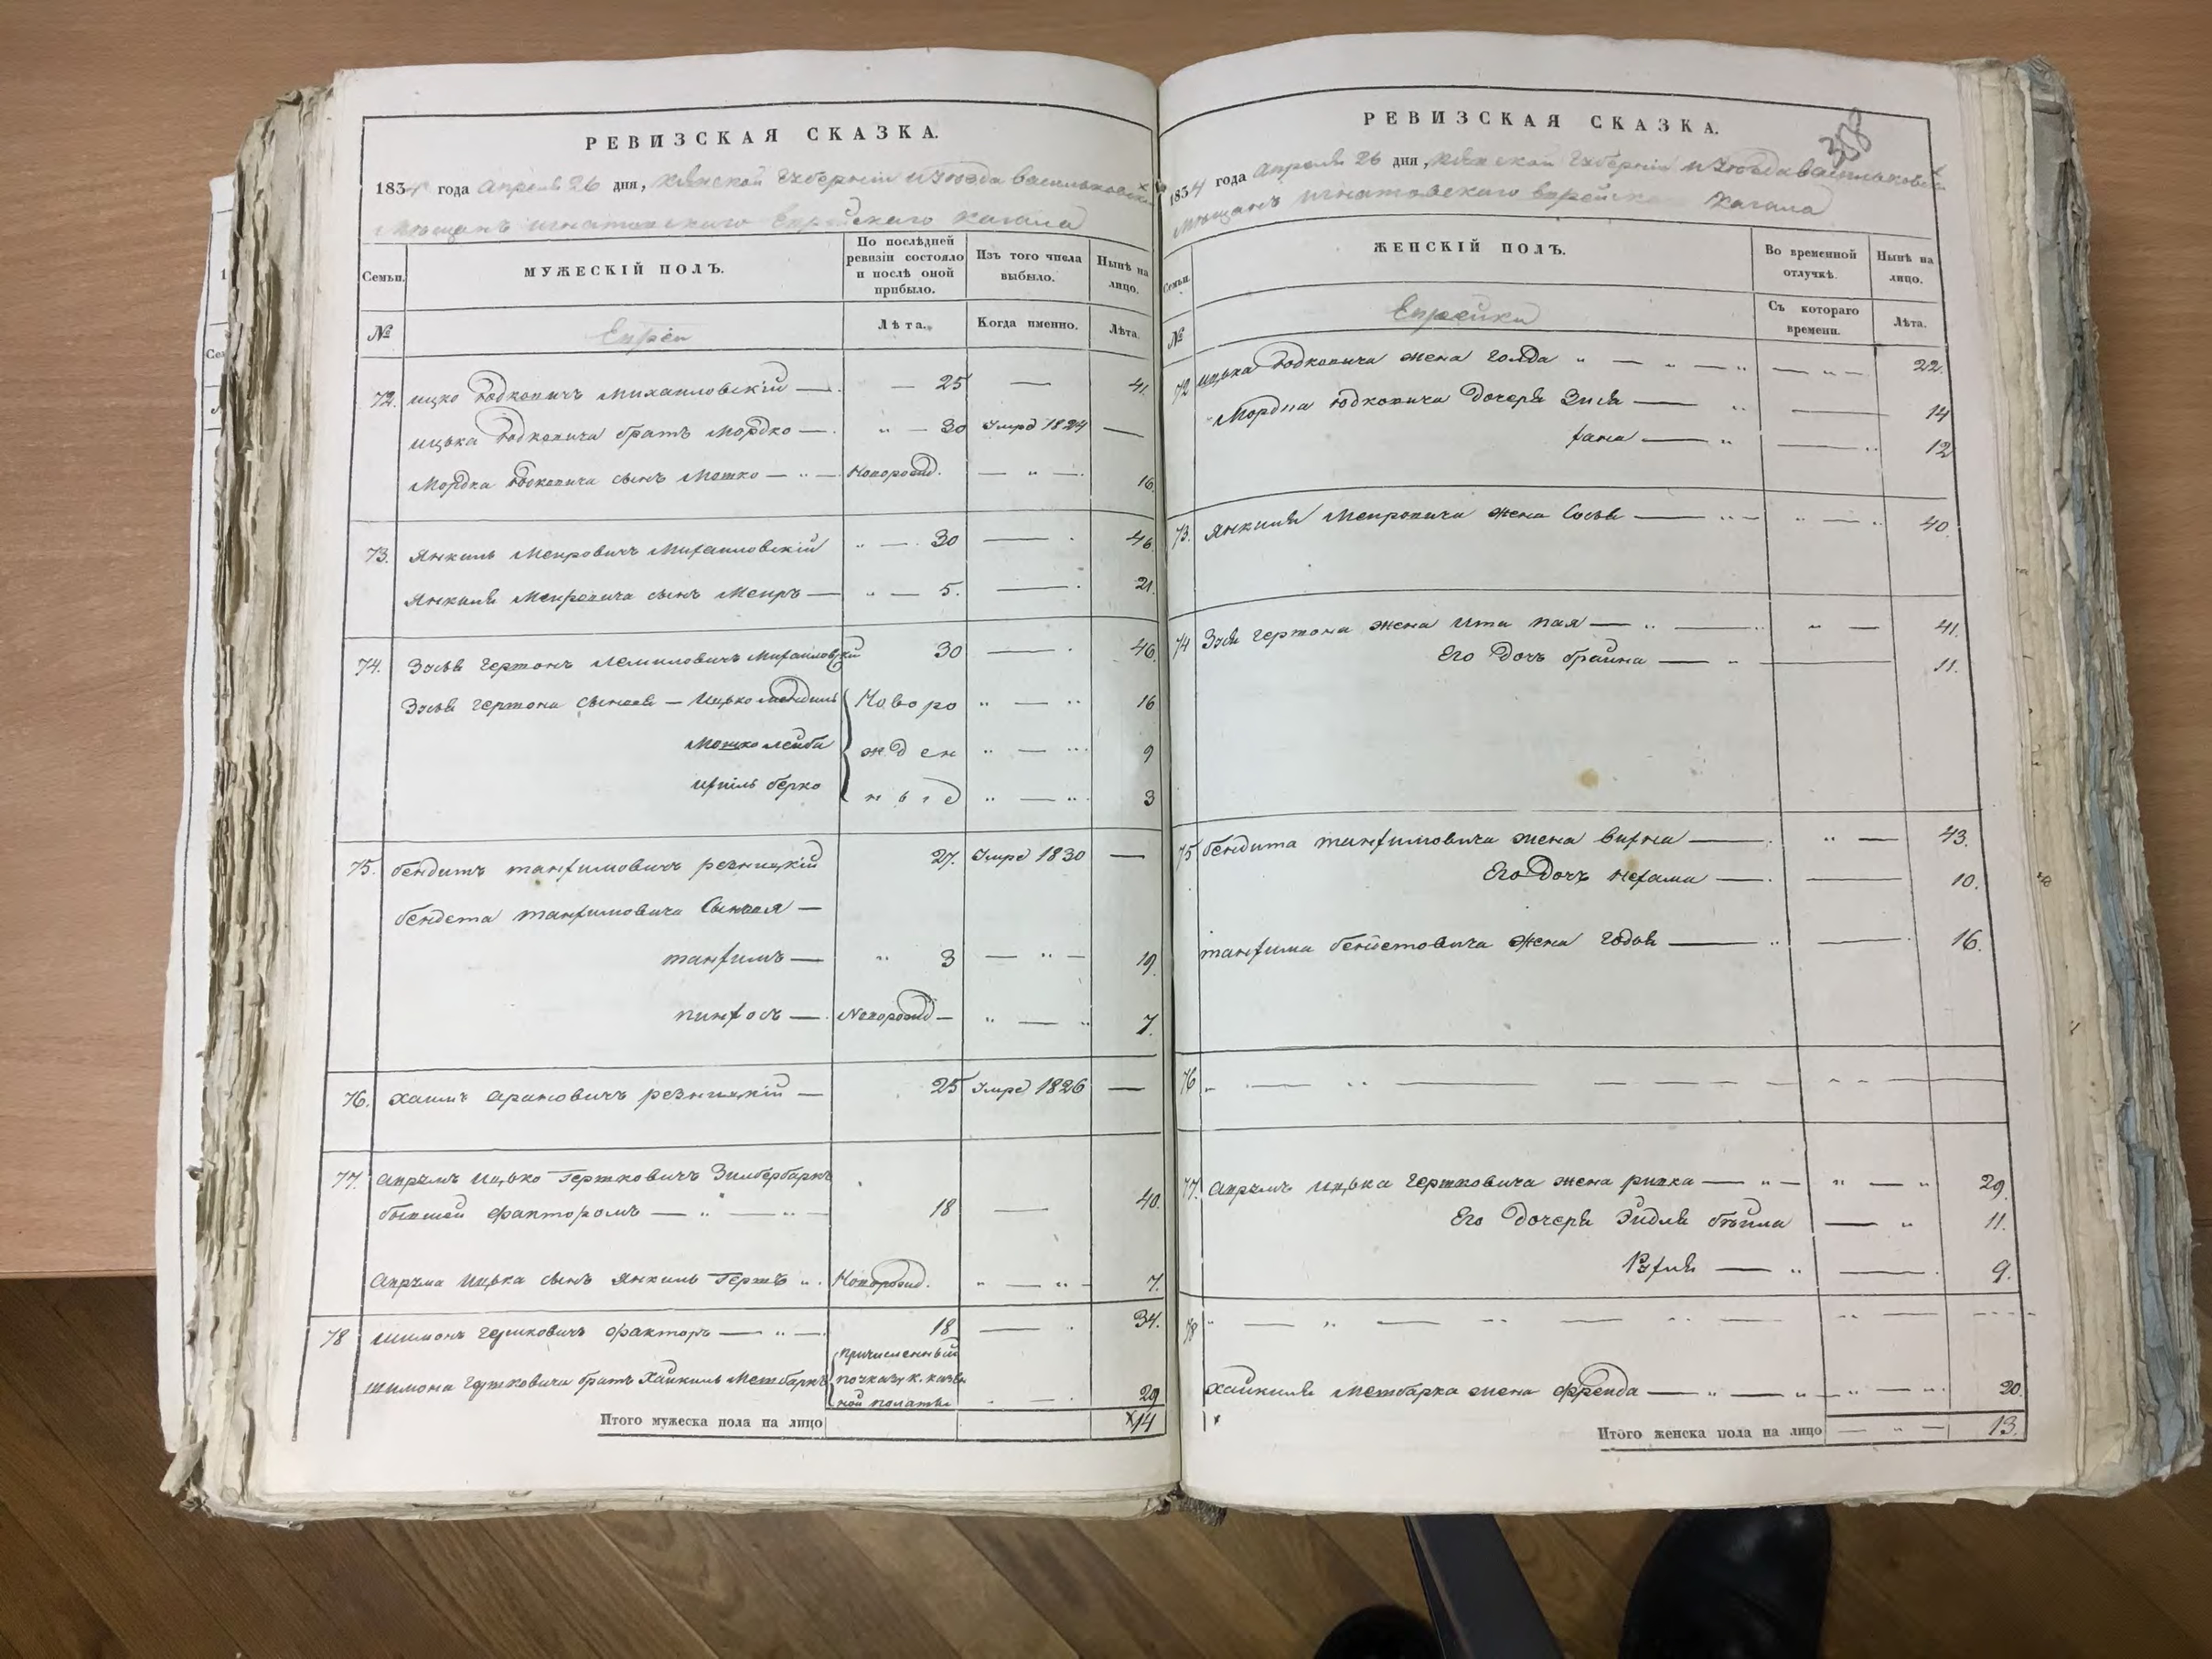 РЕВИЗСКАЯ СКАЗКА.
1834 года апреля 26 дня, Киевской Губернии и уезда васильковск
Мещанъ игнатовскаго Еврейскаго кагала
Семьи.
МУЖЕСКІЙ ПОЛЪ.
По послѣдней ревизіи состояло и послѣ оной прибыло.
Изъ того числа выбыло.
Нынѣ на лицо.
№
Евреи
Лѣта.
Когда именно.
Лѣта.
72. ицко Юдковичъ михаиловскій — — 25 — 41.
ицька Юдковича братъ мордко — " — 30 Умре 1824 —
Мордка Юдковича сынъ Мошко — " — Новорожд. — " — 16.
73. янкиль Меировичъ Михаиловскій " — 30 — 46.
янкиля Меировича сынъ Меиръ — " — 5. — 21.
74. Зусь гершонъ Михаиловскій 30 — 46.
гершона сыновя — Ицько мендиль Новоро " — " 16
мошко лейба жден " — " 9
берко ные " — " 3
75. бендитъ танхимовичъ резницкій 27. Умре 1830 —
бендета танхимовича Сыновя —
танхимъ — " 3 — " — 19.
пинхосъ — Новорожд — " — " 7.
76. хаимъ ароновичъ резницкій — 25 Умре 1826 —
77. апрумъ Ицько Гершковичъ Зилбербаркъ
бывшей факторомъ — " — " — 18 — 40.
апрума Ицька сынъ янкиль Гершъ ". Новорожд. " — " — 7.
78 шимонъ гершковичъ факторъ — " —. 18 — 34.
шимона гершковича братъ Хаикиль Метбаркъ причисленный по указу к. казен ной полаты 29
Итого мужеска пола на лицо 14
РЕВИЗСКАЯ СКАЗКА.
1834 года апреля 26 дня, Киевской Губернии и уезда васильковск
мещанъ игнатовскаго еврейска кагала
Семьи.
ЖЕНСКІЙ ПОЛЪ.
Во временной отлучкѣ.
Нынѣ на лицо.
№
Еврейки
Съ котораго времени.
Лѣта.
72 ицька Юдковича жена голда " — " — " — " — 22.
Мордка Юдковича дочери Зися — " — 14
хана — " — 12
73. янкиля Меировича жена Сося — " — " — " 40.
74 гершона жена ита пая — " — " — 41.
Его дочь браина — " — 11.
75 бендита танхимовича жена — " — 43.
Его дочь нехама — — 10.
танхима бендетовича жена годя — " — 16.
76
77. апрумъ ицька гершковича жена ривка — " — " — " 29.
Его дочери Эйдля бейла — " 11.
Рухля — " — 9.
78
хаикиля метбарка жена фрейда — " — " — " — " 20.
Итого женска пола на лицо — " — 13.